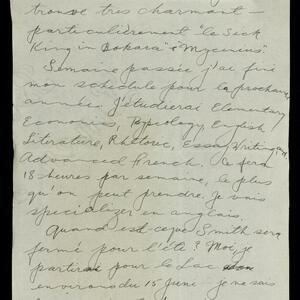 trouve très charmant —
particulièrement "le Sick
King in Bokara" & "Mycerinus"
Semaine passée j'ai fixé
mon schedule pour la prochaine
année. J'étudierai Elementary
Economics, Psycology, English
Literature, Rhetoric, Essay Writing, et
Advanced French. Ce sera
18 heures par semaine, le plus
qu'on peut prendre. Je vais
specializer en anglais.
Quand est-ce que Smith sera
fermé pour l'été? Moi, je
partirai pour le Lac
environs du 15 juin je ne sais